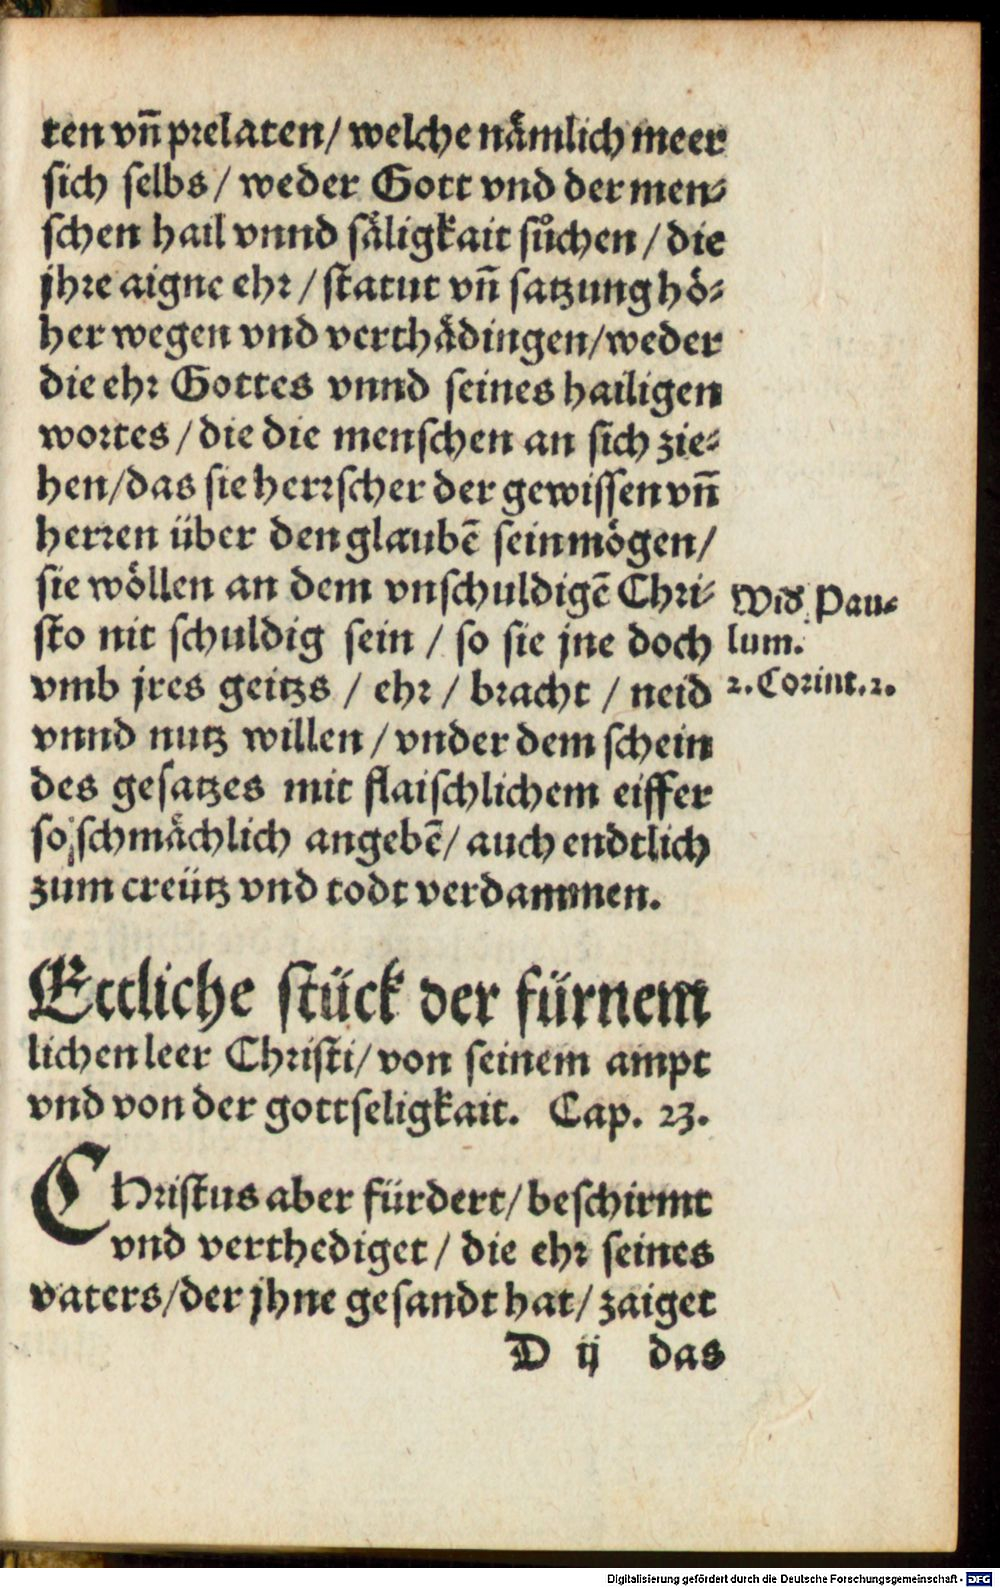 ten vn̄ prelaten/ welche nämlich meer
sich selbs/ weder Gott vnd der men⸗
schen hail vnnd säligkait sůchen/ die
jhre aigne ehr/ statut vn̄ satzung hö⸗
her wegen vnd verthädingen/ weder
die ehr Gottes vnnd seines hailigen
wortes/ die die menschen an sich zie⸗
hen/ das sie herrscher der gewissen vn̄
herren über den glaubē sein mögen/
sie wöllen an dem vnschuldigē Chri⸗
sto nit schuldig sein/ so sie jne doch
vmb jres geitzs/ ehr/ bracht/ neid
vnnd nutz willen/ vnder dem schein
des gesatzes mit flaischlichem eiffer
so schmächlich angebē/ auch endtlich
zum creütz vnd todt verdammen.
Wid. Pau⸗
lum.
2. Corint. 2.
Ettliche stück der fürnem
lichen leer Christi/ von seinem ampt
vnd von der gottseligkait. Cap. 23.
CHristus aber fürdert/ beschirmt
vnd verthediget/ die ehr seines
vaters/ der jhne gesandt hat/ zaiget
D ij das
Digitalisierung gefördert durch die Deutsche Forschungsgemeinschaft - DFG